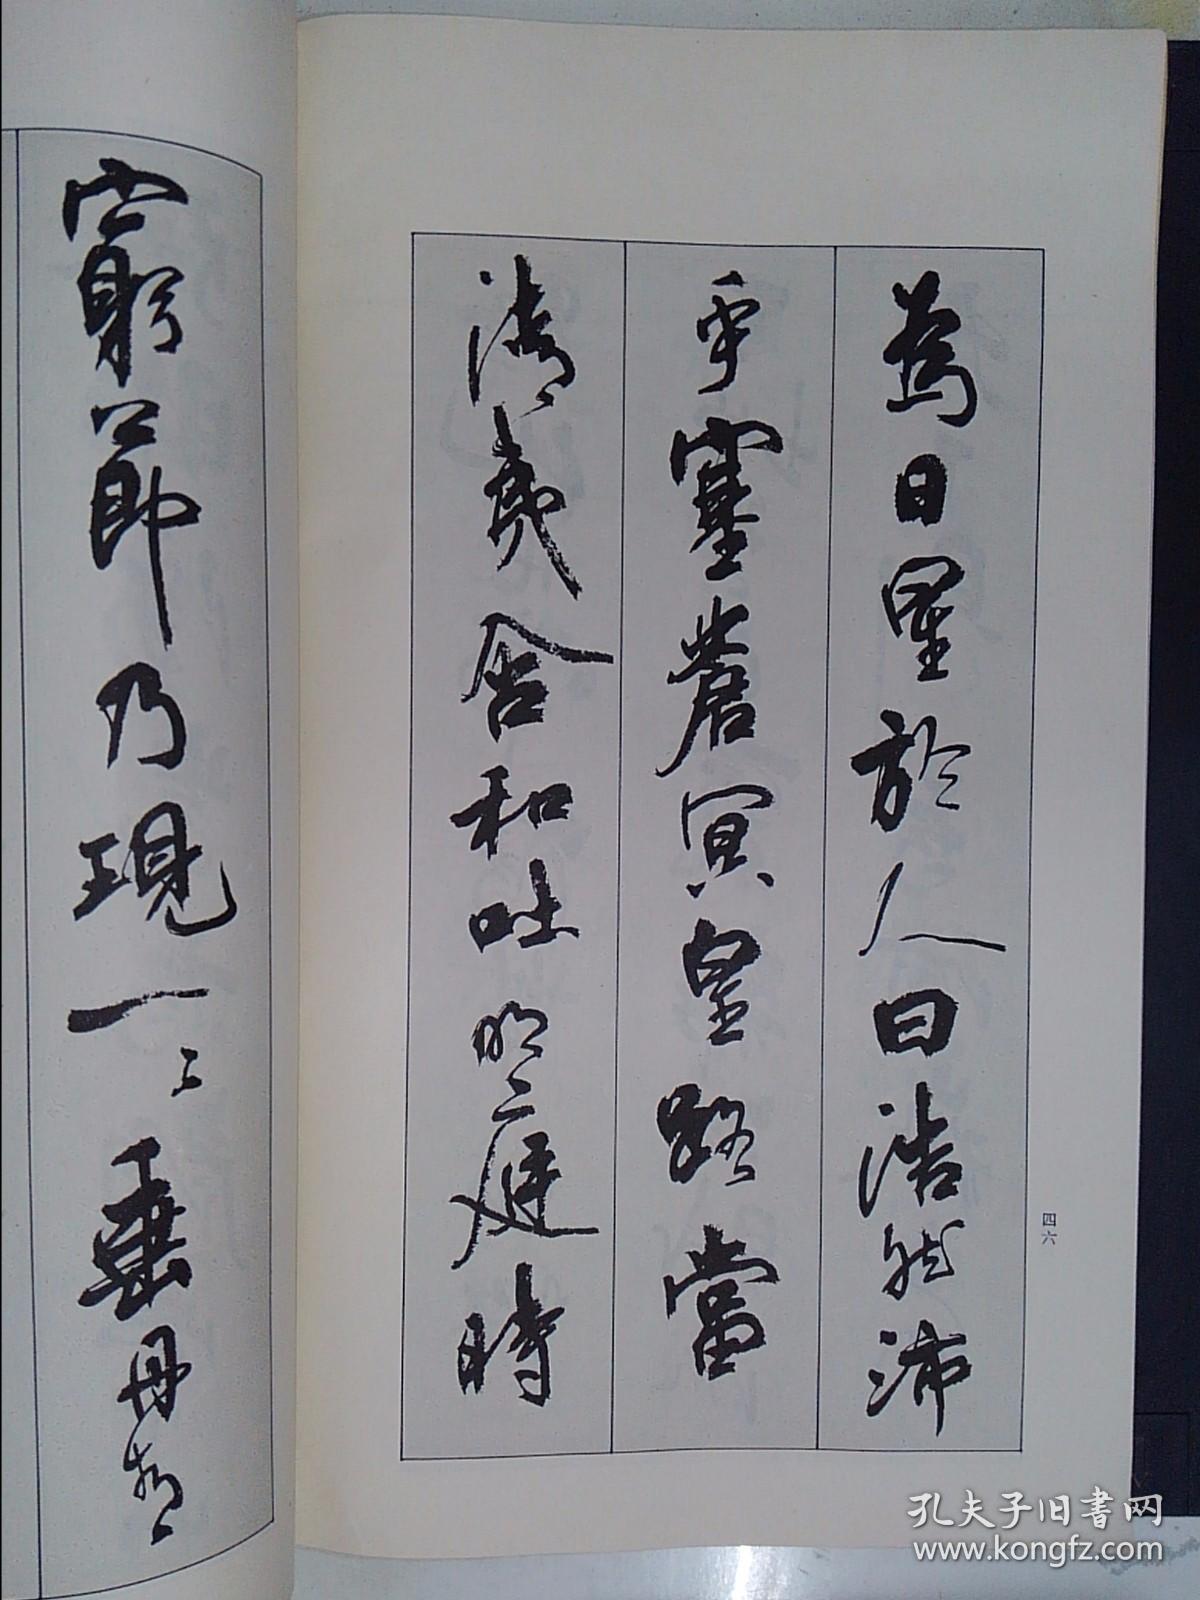 爲日星於人曰浩然沛
乎塞蒼冥皇路當
清夷含和吐明〻庭時
窮節乃現一〻垂丹青
四六
孔夫子旧书网
www.kongfz.com